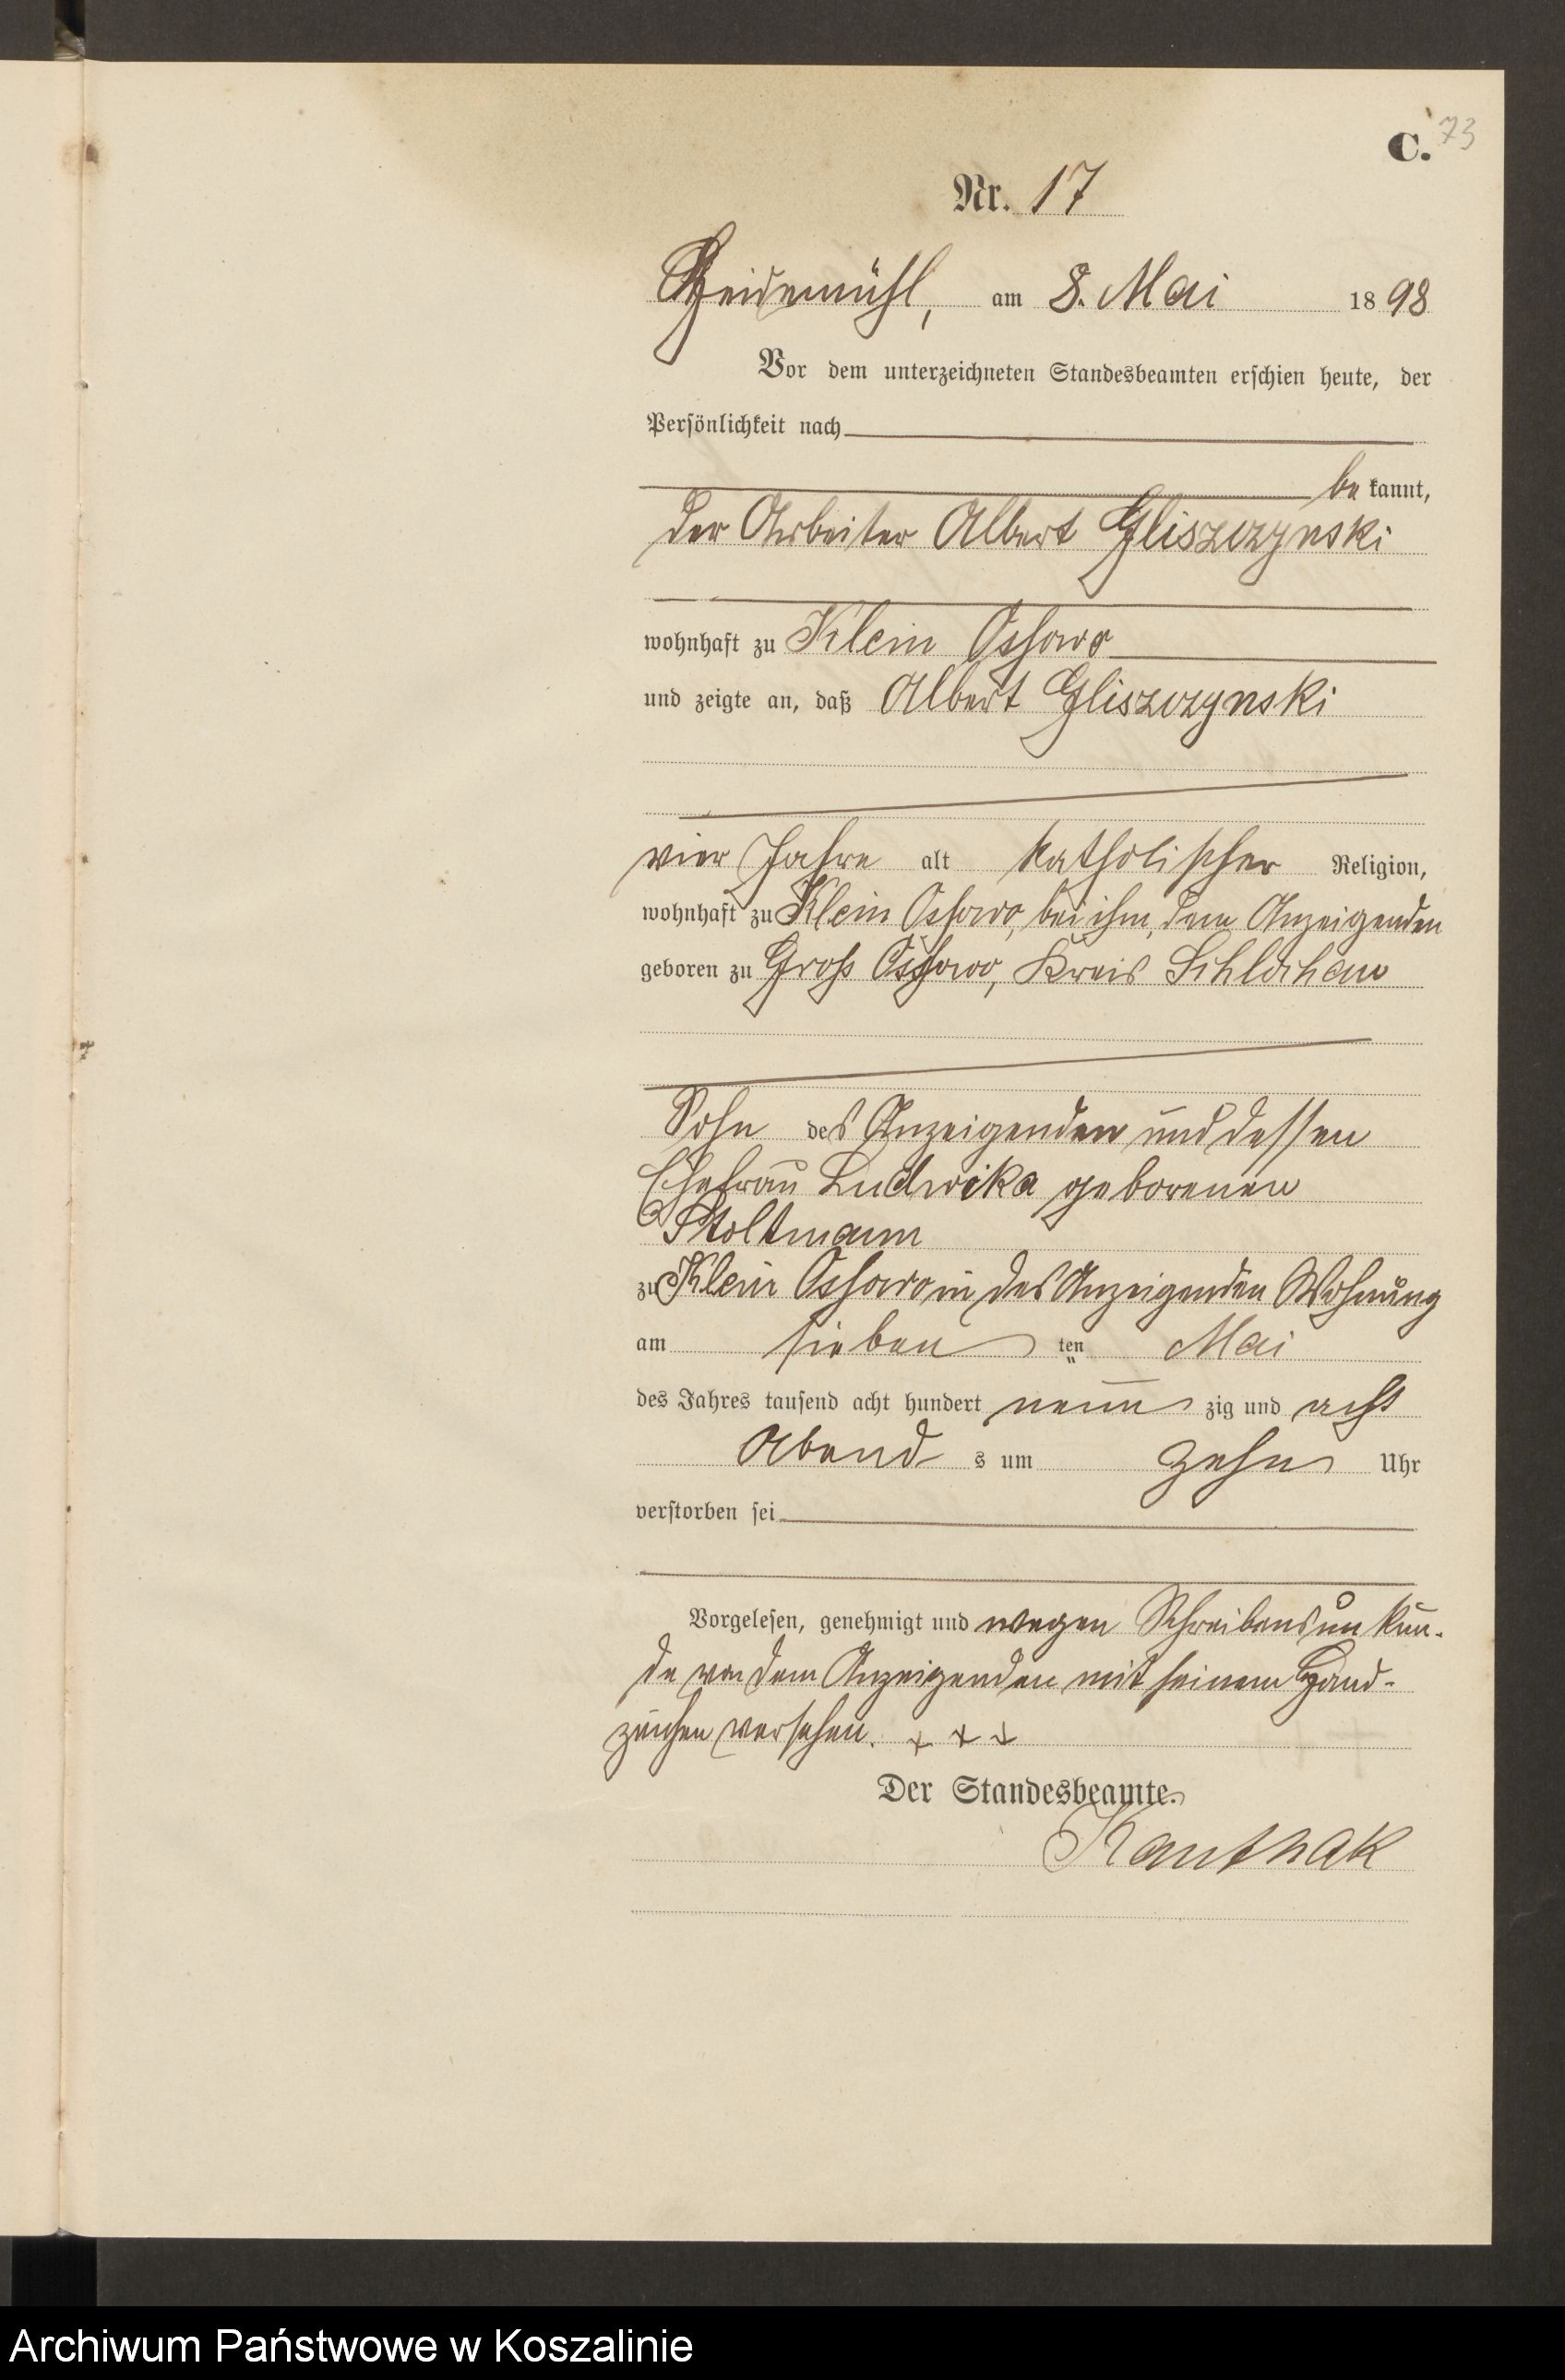 C. 73
Nr. 17
Heidemühl, am 8. Mai 1898
Vor dem unterzeichneten Standesbeamten erschien heute, der
Persönlichkeit nach
bekannt,
der Arbeiter Albert Gliszczynski
wohnhaft zu Klein Ossowo
und zeigte an, daß Albert Gliszczynski
vier Jahre alt katholischer Religion,
wohnhaft zu Klein Ossowo, bei ihm, dem Anzeigenden
geboren zu Groß Ossowo, Kreis Schlochau
Sohn des Anzeigenden und dessen
Ehefrau Ludwika geborenen
Stoltmann
zu Klein Ossowo in des Anzeigenden Wohnung
am sieben ten Mai
des Jahres tausend acht hundert neun zig und acht
Abend s um zehn Uhr
verstorben sei
Vorgelesen, genehmigt und wegen Schreibensunkun-
de von dem Anzeigenden mit seinem Hand-
zeichen versehen. + + +
Der Standesbeamte.
Kanthak
Archiwum Państwowe w Koszalinie